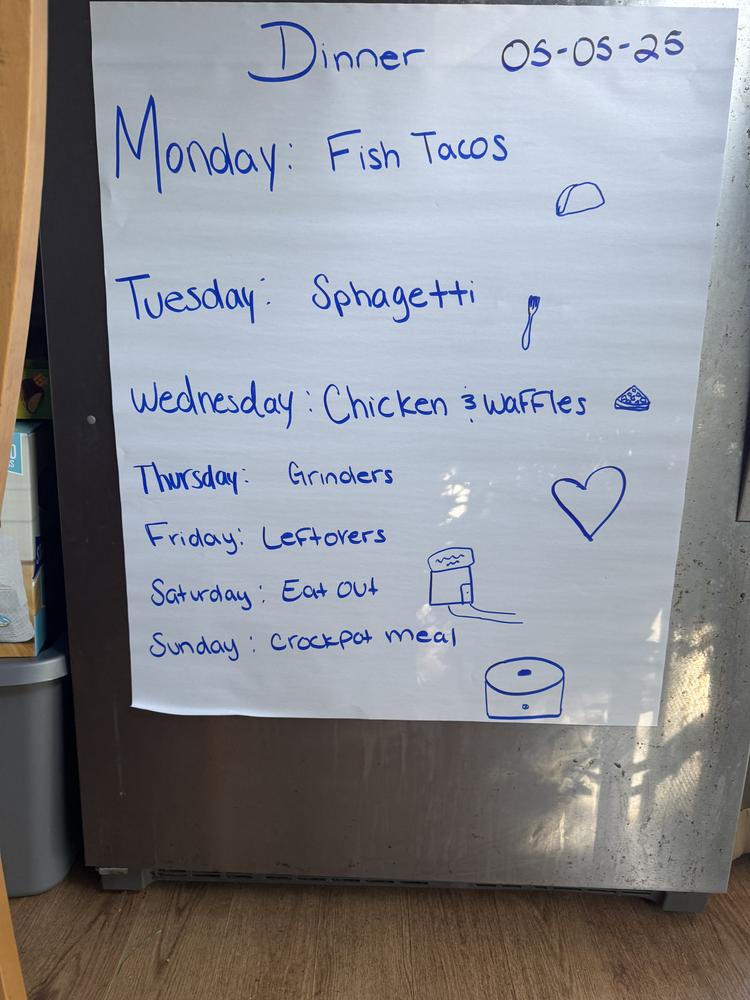 Dinner 05-05-25
Monday: Fish Tacos
Tuesday: Sphagetti
Wednesday: Chicken & Waffles
Thursday: Grinders
Friday: Leftovers
Saturday: Eat Out
Sunday: Crockpot meal